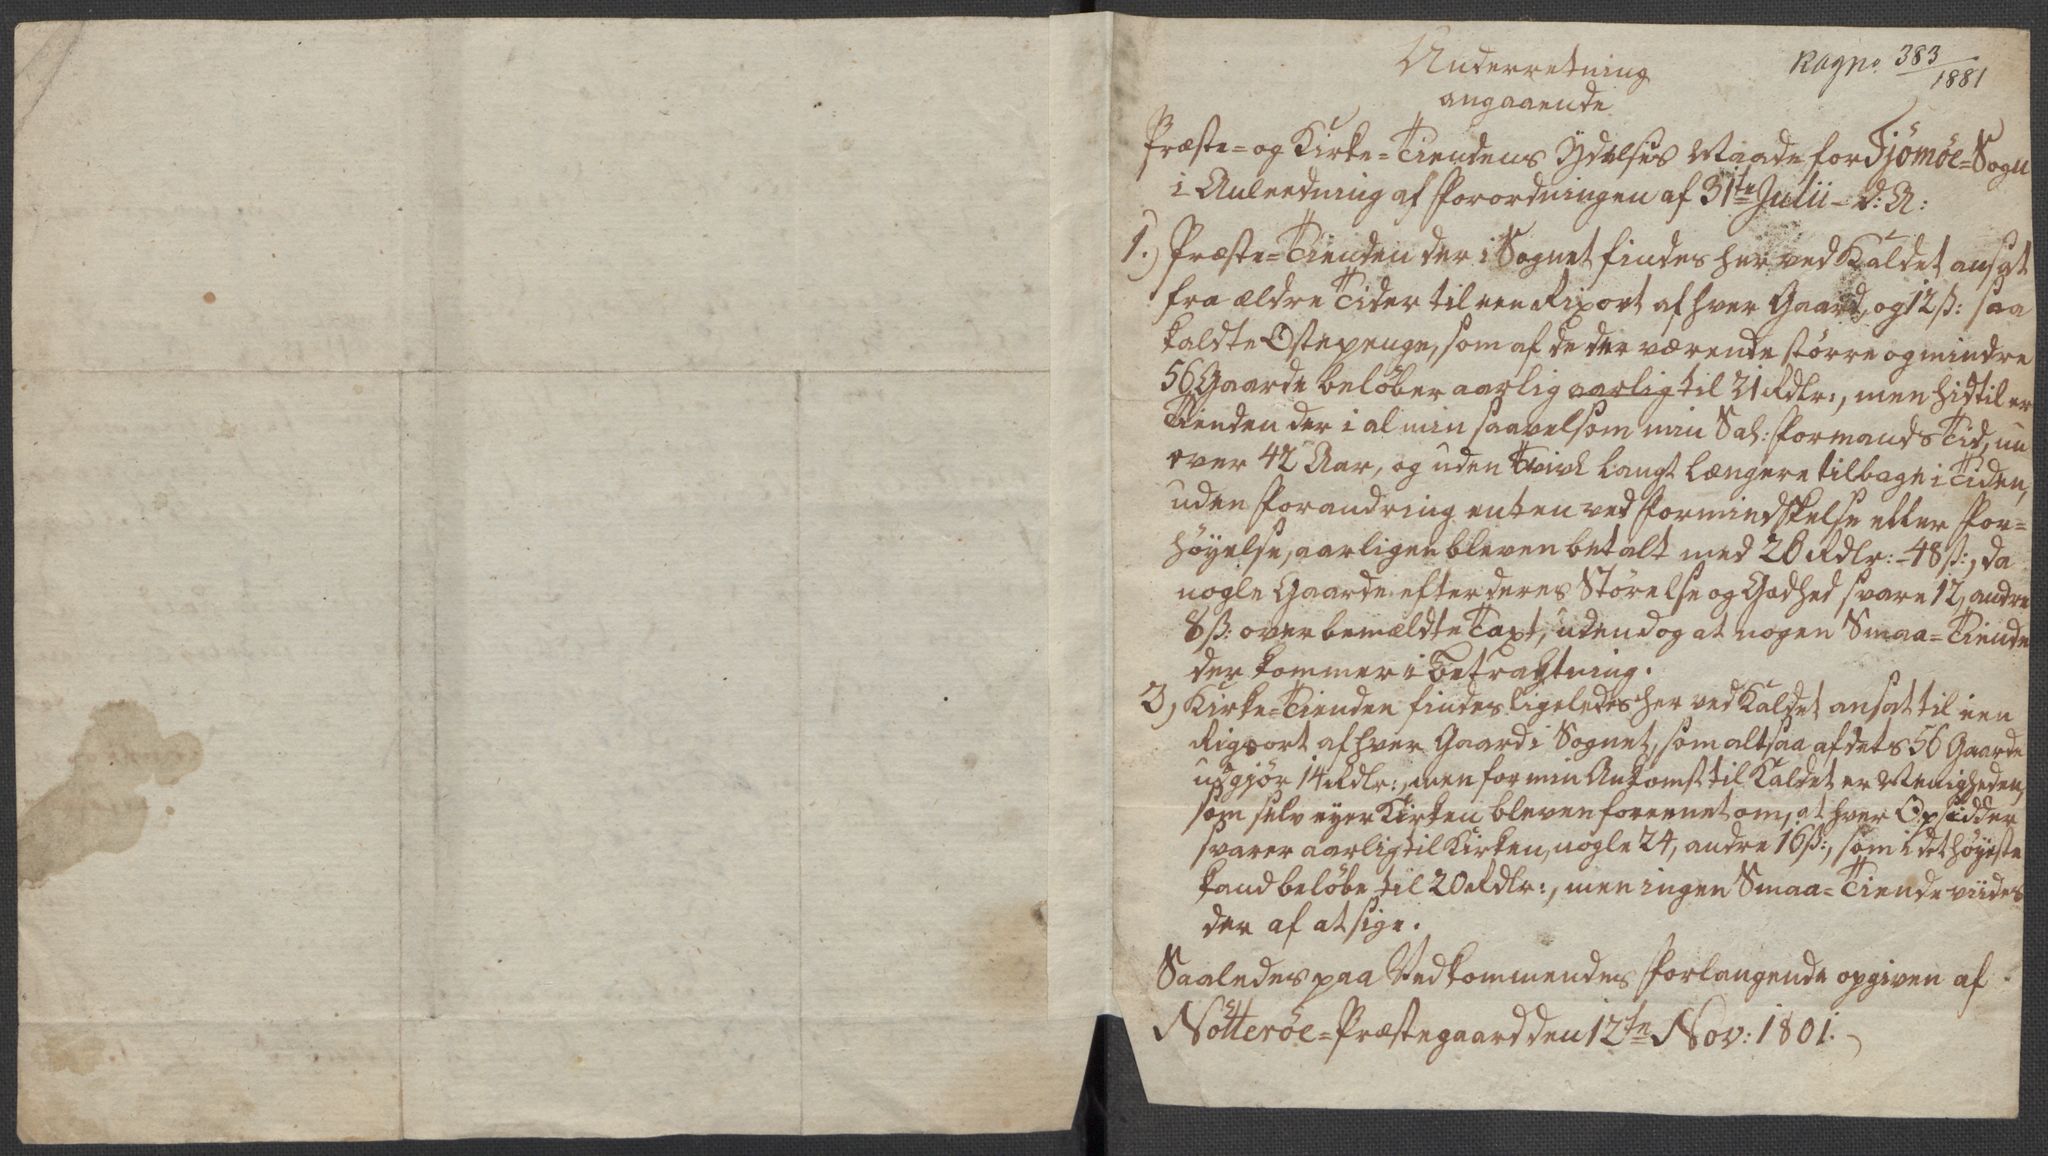 Underretning
angaaende
Ragno. 383/1881
Præste= og Kirke=Tiendens Ydelses Maade for Tjömöe=Sogn
i Anleedning af Forordningen af 31te Julii - d: A:
1.) Præste=Tienden der i Sognet findes her ved Kaldet ansat
fra ældre Tider til een Rixort af hver Gaard, og 12 ß: saa
kaldte Ostepenge, som af de der værende större og mindre
56 Gaarde belöber aarlig aarlig til 21 Rdlr:, men hidtil er
Tienden der i al min saavelsom min Sal: Formands Tid, nu
over 42 Aar, og uden Tvivl langt længere tilbage i Tiden,
uden Forandring enten ved Formindskelse eller For=
höyelse, aarligen bleven betalt med 26 Rdlr: - 48 ß:, da
nogle Gaarde efter deres Störelse og Godhed svare 12, andre
8 ß: over bemældte Taxt, uden dog at nogen Smaa=Tiende
der kommer i Betragtning.
2, Kirke=Tienden findes ligeledes her ved Kaldet ansat til een
Rigsort af hver Gaard i Sognet, som altsaa af dets 56 Gaarde
udgjör 14 Rdlr:, men for min Ankomst til Kaldet er Menigheden,
som selv eyer Kirken bleven foreenet om, at hver Opsidder
svarer aarlig til Kirken, nogle 24, andre 16 ß:, som i det höyeste
kand belöbe til 20 Rdlr:, men ingen Smaa=Tiende viides
der af at sige.
Saaledes paa Vedkommendes Forlangende opgiven af
Nötteröe=Præstegaard den 12te Nov: 1801.